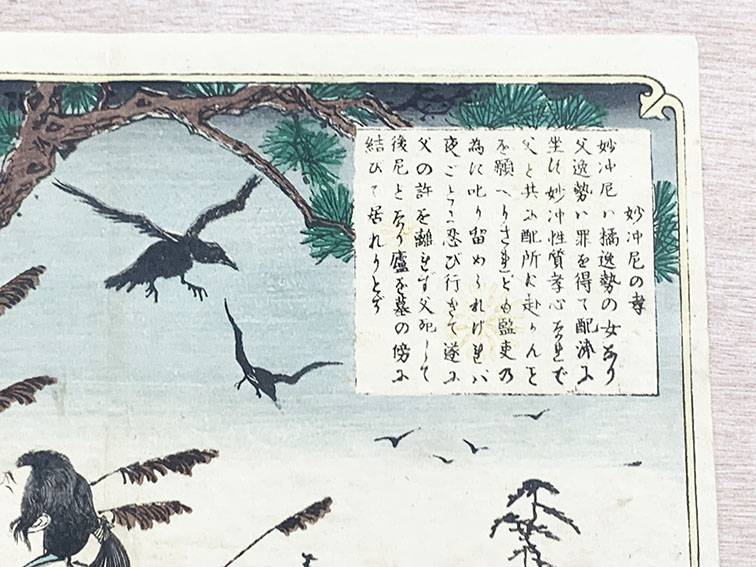 妙冲尼の孝
妙冲尼ハ橘逸勢の女あり
父逸勢ハ罪を得て配流に
坐せ妙冲性質孝心なれバ
父と共に配所に赴かんと
を願へりされども監吏の
為に叱り留められけれバ
夜ごとに忍び行きて遂に
父の許を離れず父死して
後尼となり廬を墓の傍に
結びて居れりとぞ